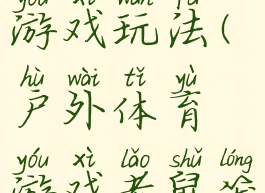 yóu xì wán fǎ
游戏玩法(
hù wài tǐ yù
户外体育
yóu xì lǎo shǔ lóng
游戏老鼠